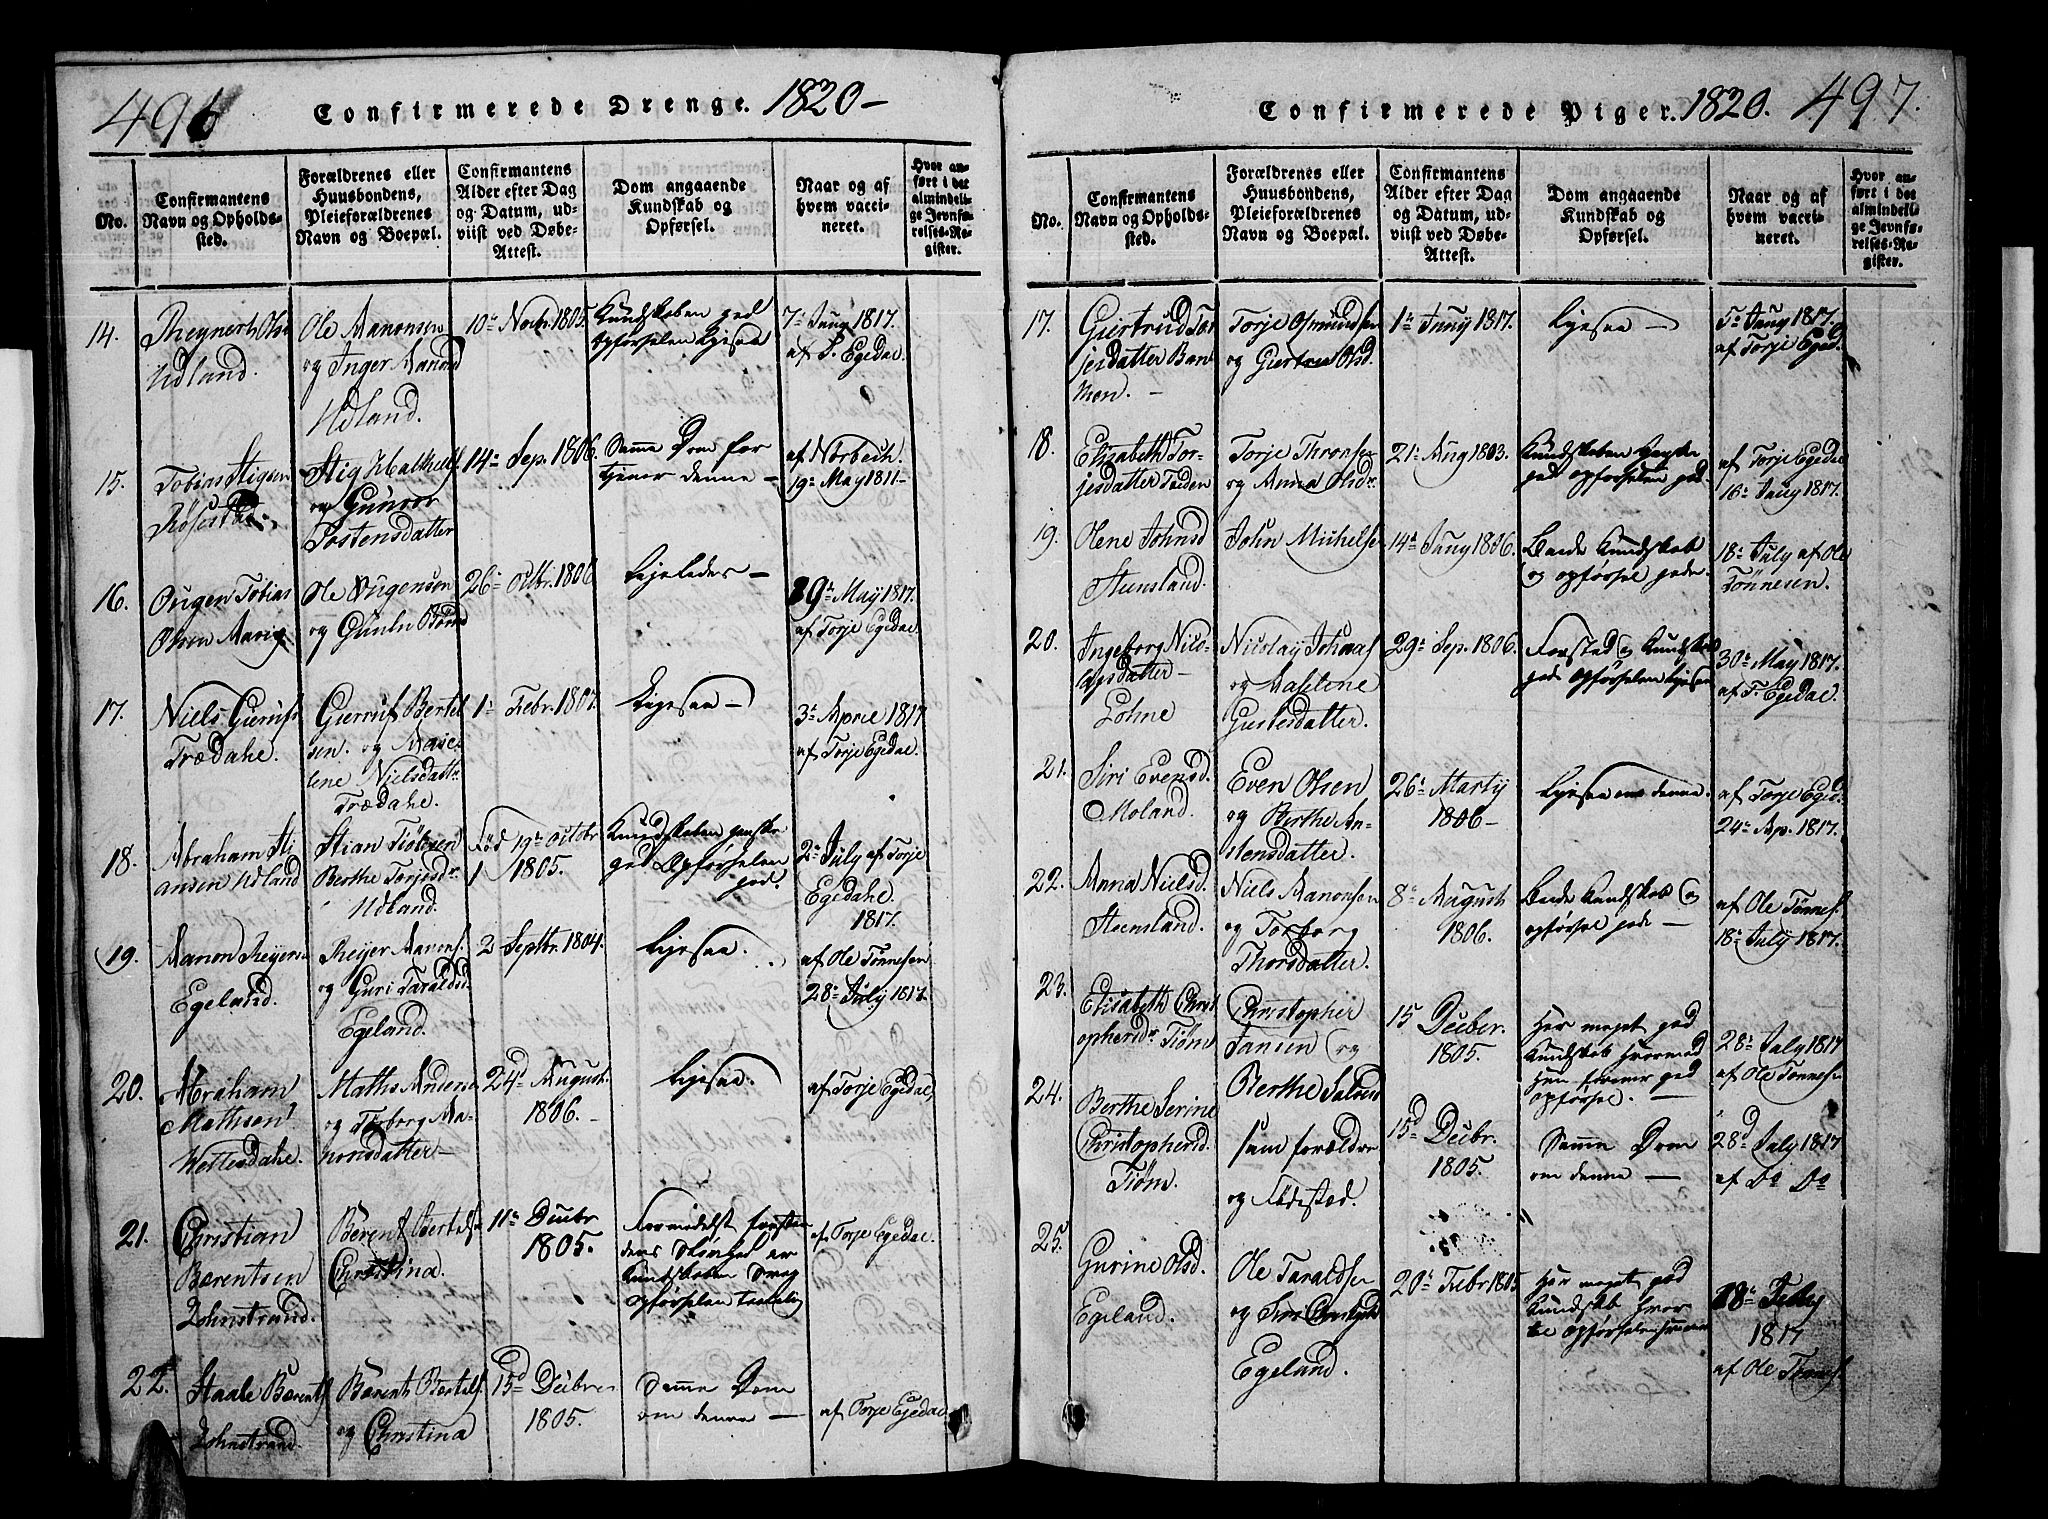 496
Confirmerede Drenge. 1820-
No.
Confirmantens
Navn og Opholds-
sted.
Forældrenes eller
Huusbondens,
Pleieforældrenes
Navn og Boepæl.
Confirmantens
Alder efter Dag
og Datum, ud-
viist ved Døbe-
Attest.
Dom angaaende
Kundskab og
Opførsel.
Naar og af
hvem vacci-
neret.
Hvor an-
ført i det
almindeli-
ge Jevnfø-
relses-Re-
gister.
14.
Udland.
Ole Aanonsen
og Inger Aanond
Udland.
10de Novbr. 1805.
Kundskaben god
Opførselen Ligesaa
7de Juny 1817.
af T. Egedal.
15.
Tobias Stigsen
Stig
og Gunvor
Tostensdatter
14de Sep. 1806.
Samme Dom for
tjener denne -
af Nørbech.
19de May 1811-
16.
Ougen Tobias
Olsen
Ole Ougensen
og
26de Octbr. 1806
Ligeledes -
29de May 1817.
af Torje Egedal.
17.
Niels
Trædahl.
Bertel
sen. og Masse-
lene Nielsdattr
Trædahl.
1de Febr. 1807.
Ligesaa -
3de April 1817
af Torje Egedal.
18.
Abraham Sti
ansen Udland
Stian
Berthe Torjesdr
Udland.
Fød 19de Octbr
1805.
Kundskaben ganske
god Opførselen
god.
2de July af Torje
Egedahl.
1817.
19.
Aanon Reyers
Egeland.
Reyer Aanons.
og Guri Taraldsd
Egeland.
2 Septbr. 1804.
Ligesaa.
af Ole Tønnesen
28de July 1817.
20.
Abraham
Mathsen
Mathis Anders
og Torborg Aa-
nonsdatter-
24d August.
1806. -
Ligesaa.
af Torje Egedal,
21.
Christian
Bærentsen
Johnstrand.
Berent Bertels
Christina.
11de Decbr
1805.
Formedelst
Kundskaben svag
Opførselen
af Torje Egedal.
22.
Staale Bærents
Johnstrand.
Bærent Bertels.
og Christina
15d Decbr
1805.
Samme Dom
om denne -
af Torje Egedal
Confirmerede Piger. 1820. 497.
No.
Confirmantens
Navn og Opholds-
sted.
Forældrenes eller
Huusbondens,
Pleieforældrenes
Navn og Boepæl.
Confirmantens
Alder efter Dag
og Datum, ud-
viist ved Døbe-
Attest.
Dom angaaende
Kundskab og
Opførsel.
Naar og af
hvem vacci-
neret.
Hvor an-
ført i det
almindeli-
ge Jevnfø-
relses-Re-
gister.
17.
Giertrud Tor
jesdatter
Torje Osmundsen
og Olsd.
1de Juny 1817.
Ligesaa -
5de Juny 1817.
af Torje Eged.
18.
Elisabeth Tor-
jesdatter
Torje Thronsen
og Anna Olsdr.
21de Aug 1803.
Kundskaben ganske
god Opførselen god.
af Torje Egedal
16de Juny 1817.
19.
Olene Johnsd
Steensland.
John Michelsen
14de Juny 1806.
Baade Kundskab
og opførsel gode.
18de July af Ole
Tønnesen.
20.
Ingeborg Nico-
laysdatter-
Lohne
Nicolay
og Aaselene
29de Sep. 1806.
Forstad og Kundskab
gode Opførselen ligesaa
30de May 1817.
af T. Egedal.
21.
Siri Evensd.
Moland.
Even Olsen
og Berthe An-
stensdatter.
26de Marty
1806-
Ligesaa om denne.
af Torje Eged.
24de Ap. 1817.
22.
Anna Nielsd.
Steensland.
Niels Aanonsen
og Torborg
Thorsdatter.
8de August
1806.
Baade Kundskab og
opførsel gode -
af Ole Tønnes.
18de July 1817.
23.
Elisabeth Christ
opherdr. Tiøm
Christopher
Jansen og
Berthe
15 Decber.
1805.
Har meget god
Kundskab hvormed
hun forener god
Opførsel. -
28de July 1817
af Ole Tønnesen
24.
Berthe Serine
Christophersd.
Tiøm.
sam forældre
og Fødested.
15d Decbr.
1805.
Samme Dom
om denne -
28d July 1817
af Do Do
25.
Gurine Olsd.
Egeland.
Ole Taraldsen
og
Egeland.
20de Febr 1805
Har meget god
Kundskab
28de July
1817
af Ole Tønnes.